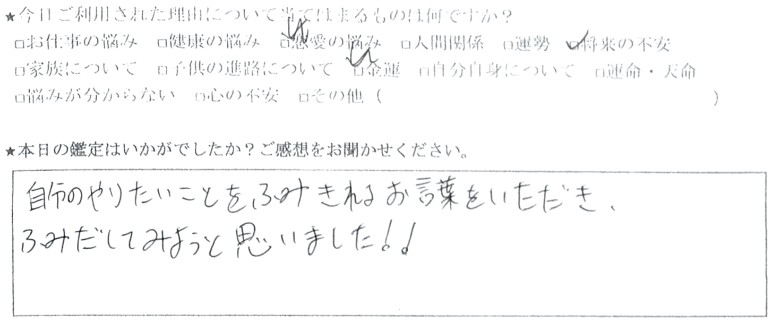 ★今日ご利用された理由について当てはまるものは何ですか？
□お仕事の悩み □健康の悩み □恋愛の悩み □人間関係 □運勢 □将来の不安
□家族について □子供の進路について □金運 □自分自身について □運命・天命
□悩みが分からない □心の不安 □その他（ ）
★本日の鑑定はいかがでしたか？ご感想をお聞かせください。
自分のやりたいことをふみきれるお言葉をいただき、
ふみだしてみようと思いました!!